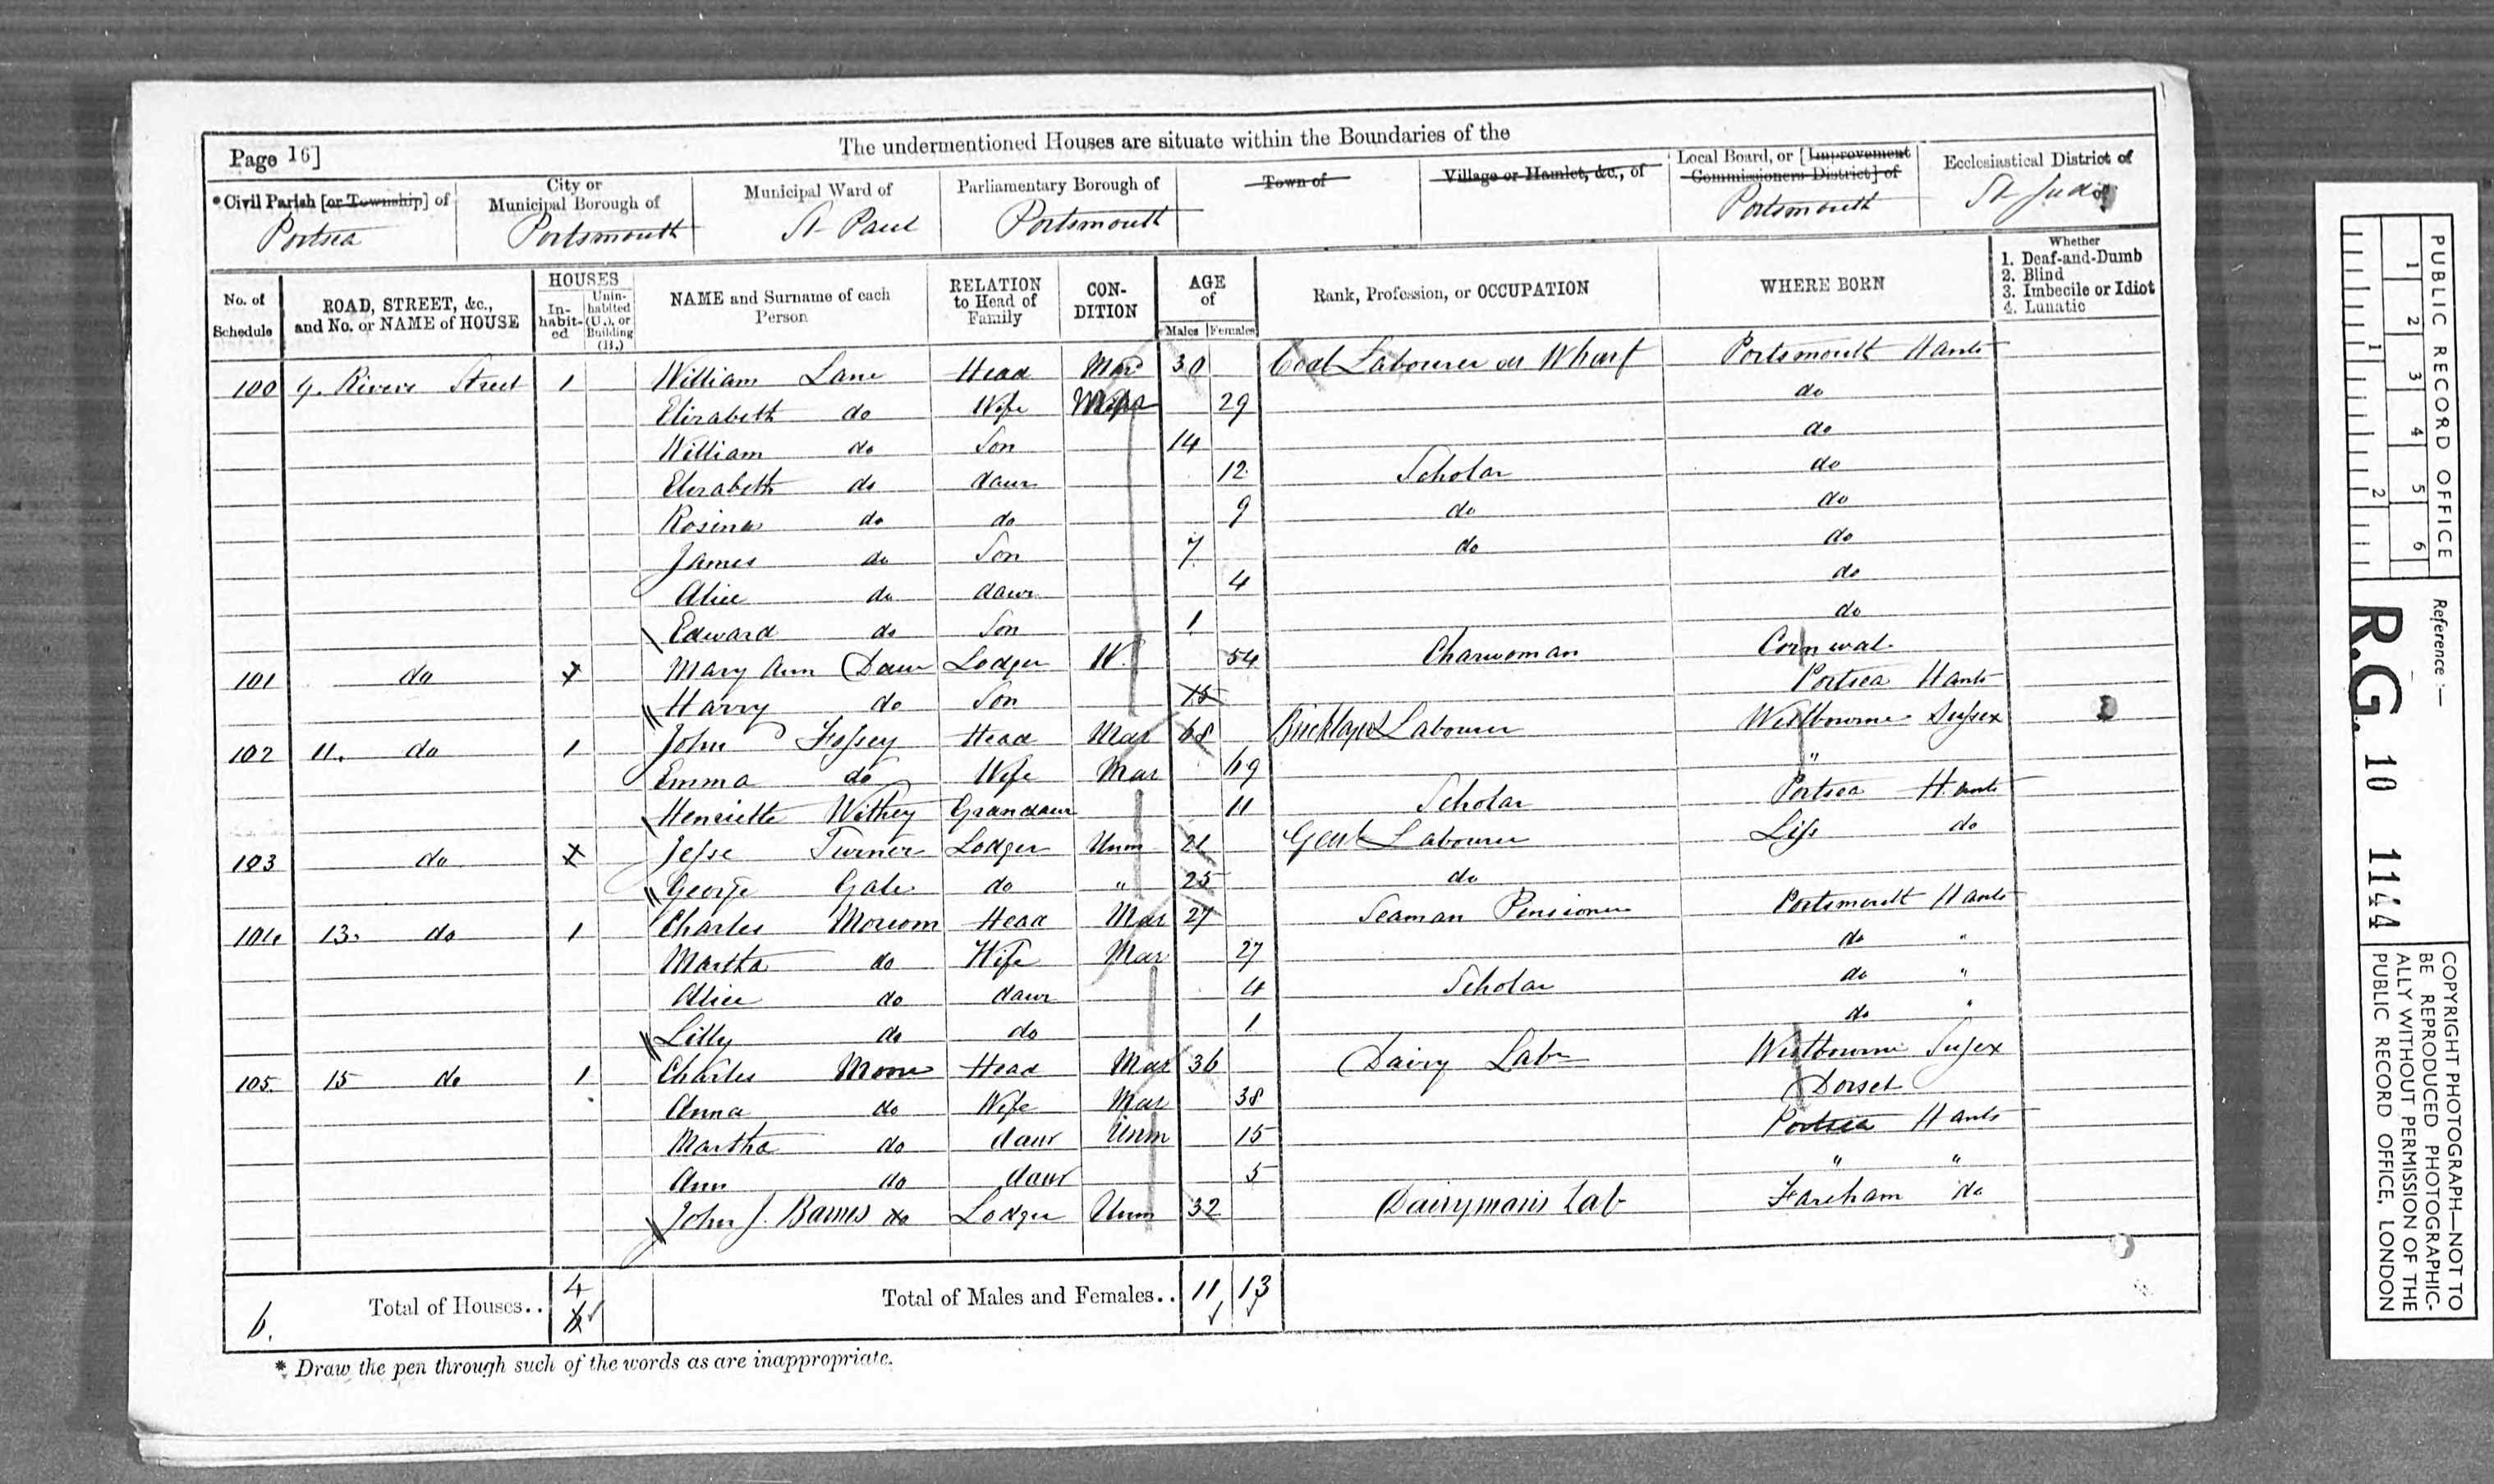 The undermentioned Houses are situate within the Boundaries of the
Page 16]
*Civil Parish [or Township] of
Portsea
City or
Municipal Borough of
Portsmouth
Municipal Ward of
St Paul
Parliamentary Borough of
Portsmouth
Town of
Village or Hamlet, &c., of
Local Board, or [Improvement
Commissioners District] of
Portsmouth
Ecclesiastical District of
St Judes
No. of
Schedule
ROAD, STREET, &c.,
and No. or NAME of HOUSE
HOUSES
In-
habit-
ed
Unin-
habited
(U.), or
Building
(B.)
NAME and Surname of each
Person
RELATION
to Head of
Family
CON-
DITION
AGE
of
Males Females
Rank, Profession, or OCCUPATION
WHERE BORN
Whether
1. Deaf-and-Dumb
2. Blind
3. Imbecile or Idiot
4. Lunatic
100 9. Rivers Street 1 William Lane Head Mar 30 Coal Labourer on Wharf Portsmouth Hants
Elizabeth do Wife 29 do
William do Son 14 do
Elizabeth do daur 12 Scholar do
Rosina do do 9 do do
James do Son 7 do do
Alice do daur 4 do
Edward do Son 1 do
101 do Mary Ann Lodger W. 54 Charwoman Cornwal
Harry do Son 15 Portsea Hants
102 11. do 1 John Fossey Head Mar 68 Bricklayers Labourer Westbourne Sussex
Emma do Wife Mar 69 "
Henriette Withey Grandaur 11 Scholar Portsea Hants
103 do Jesse Turner Lodger Unm 21 Genl Labourer Liss do
George Gale do " 25 do
104 13. do 1 Charles Morcom Head Mar 27 Seaman Pensioner Portsmouth Hants
Martha do Wife Mar 27 do "
Alice do daur 4 Scholar do "
Lilly do do 1 do "
105. 15 do 1 Charles Moore Head Mar 36 Dairy Labr Westbourne Sussex
Anna do Wife Mar 38 Dorset
Martha do daur Unm 15 Portsea Hants
Ann do daur 5 " "
John J. Barnes do Lodger Unm 32 Dairymans Lab Fareham do
6. Total of Houses.. 4
Total of Males and Females.. 11 13
* Draw the pen through such of the words as are inappropriate.
PUBLIC RECORD OFFICE
1 2 3 4 5 6
1 2
Reference :—
R.G. 10 1144
COPYRIGHT PHOTOGRAPH—NOT TO
BE REPRODUCED PHOTOGRAPHIC-
ALLY WITHOUT PERMISSION OF THE
PUBLIC RECORD OFFICE, LONDON